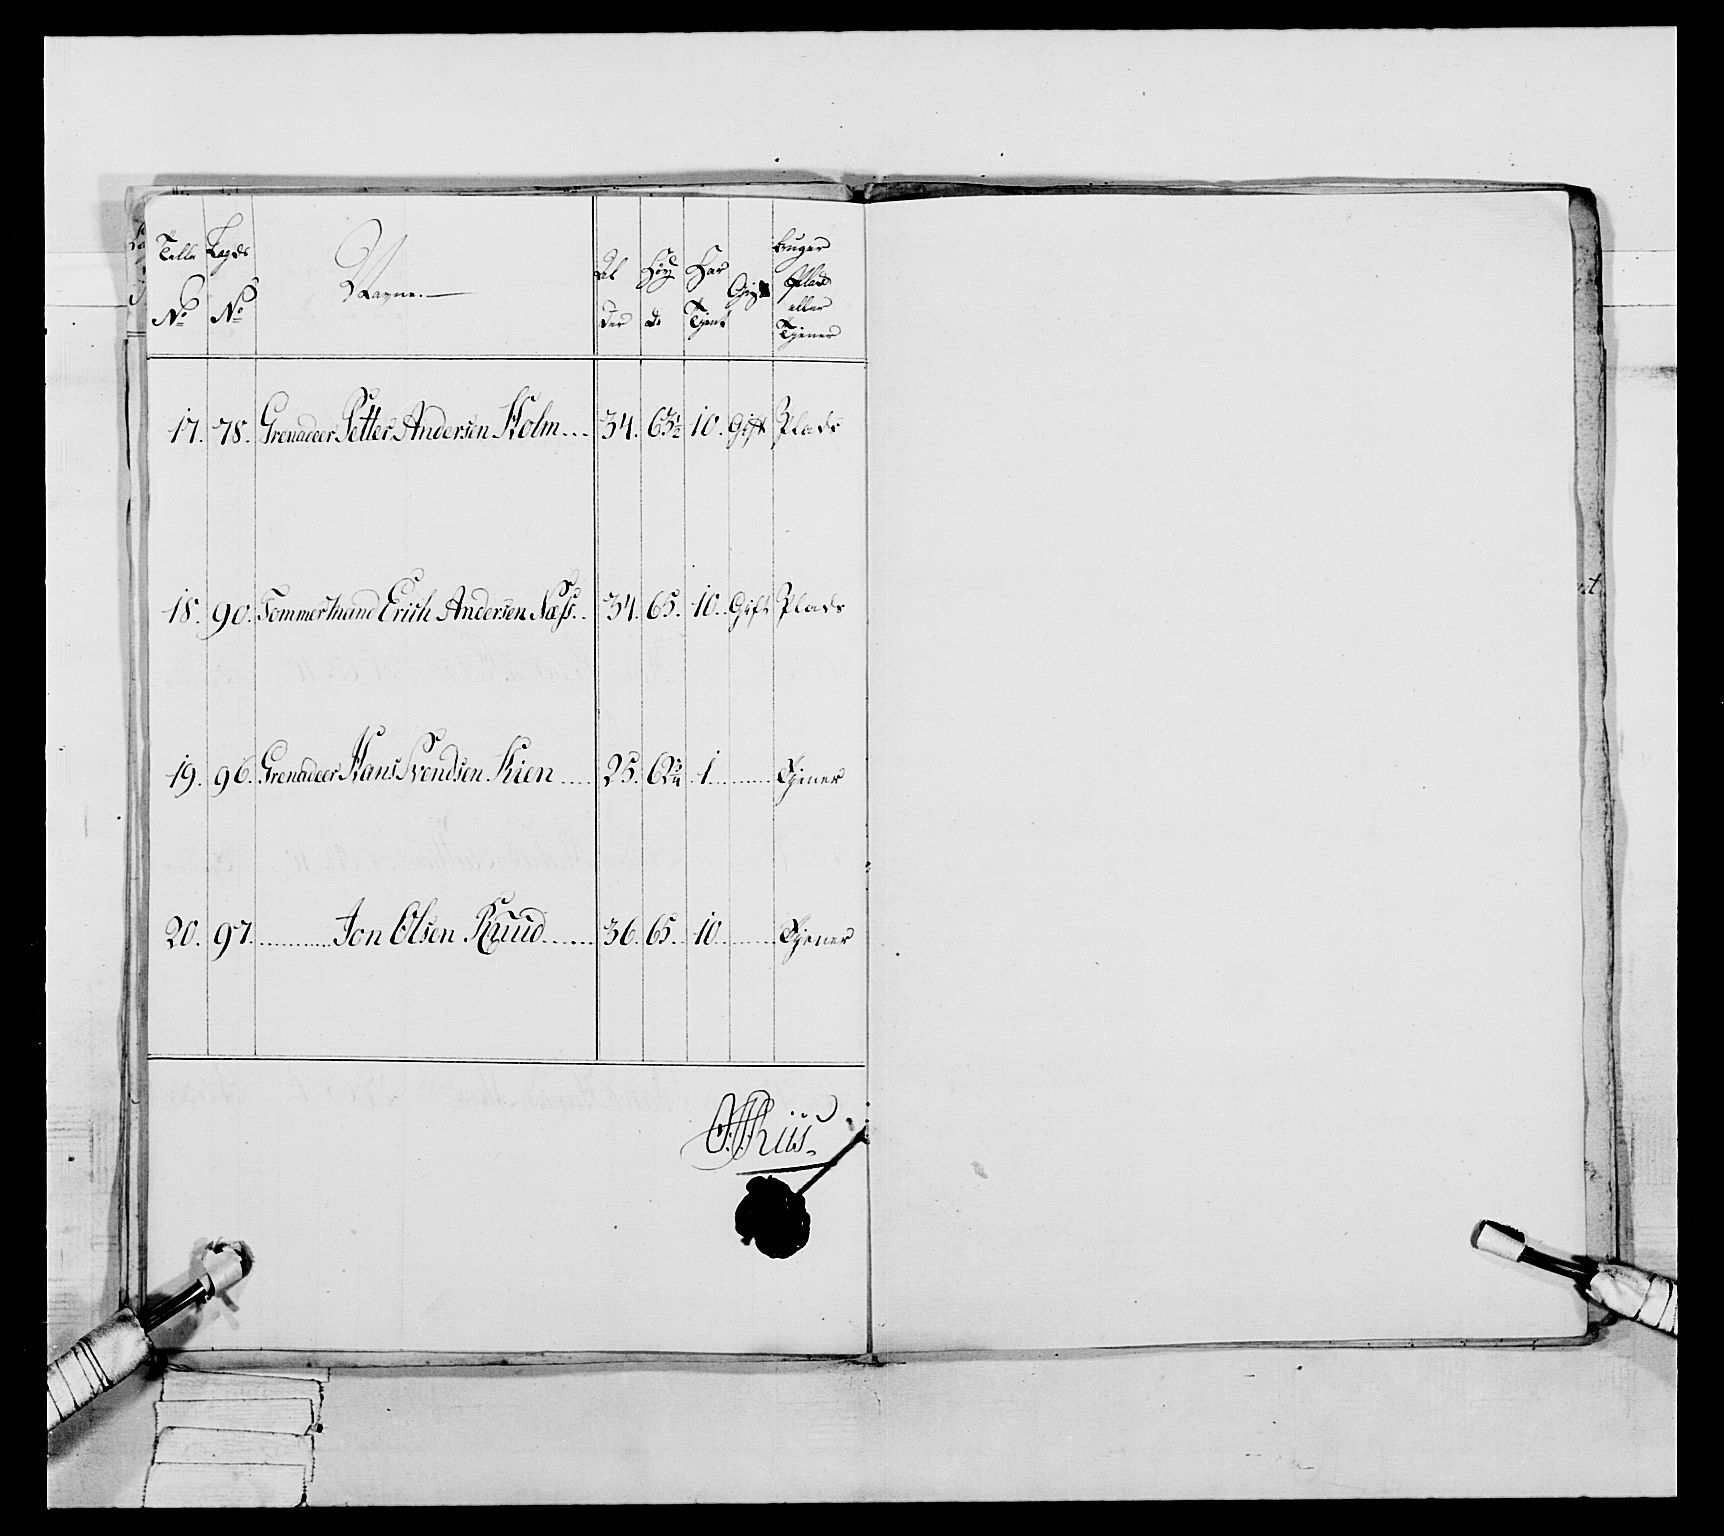 Telle No Legds No Navne. Al der Høy de Har Tjent Gift bruger Plads eller Tjener
17. 78. Grenadeer Petter Andersen Holm... 34. 63½ 10. Gift Plads
18. 90. Tommermand Erich Andersen Næss.. 34. 65. 10. Gift Plads
19. 96. Grenadeer Hans Svendsen Kien ..... 25. 62¾ 1 ........ Tjener
20. 97. .......... Jon Olsen Ruud...... 36. 65. 10 ........ Tjener